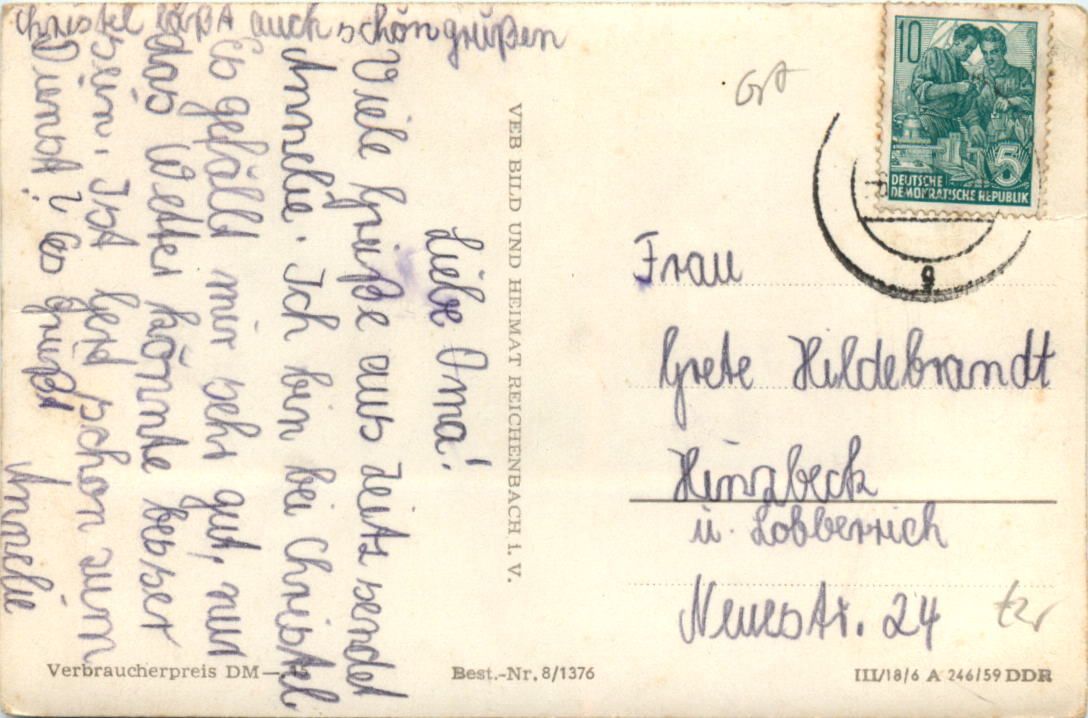 Christel läßt auch schön grüßen
Liebe Oma!
Viele Grüße aus Zeitz sendet
Annelie. Ich bin bei Christel
Es gefällt mir sehr gut, nur
das Wetter könnte besser
sein. Ist Gerd schon zum
Dienst? Es grüßt
Annelie
VEB BILD UND HEIMAT REICHENBACH i. V.
10
5
DEUTSCHE
DEMOKRATISCHE REPUBLIK
g
Frau
Grete Hildebrandt
Hinsbeck
ü. Lobberich
Neuestr. 24
Verbraucherpreis DM
Best.-Nr. 8/1376
III/18/6 A 246/59 DDR